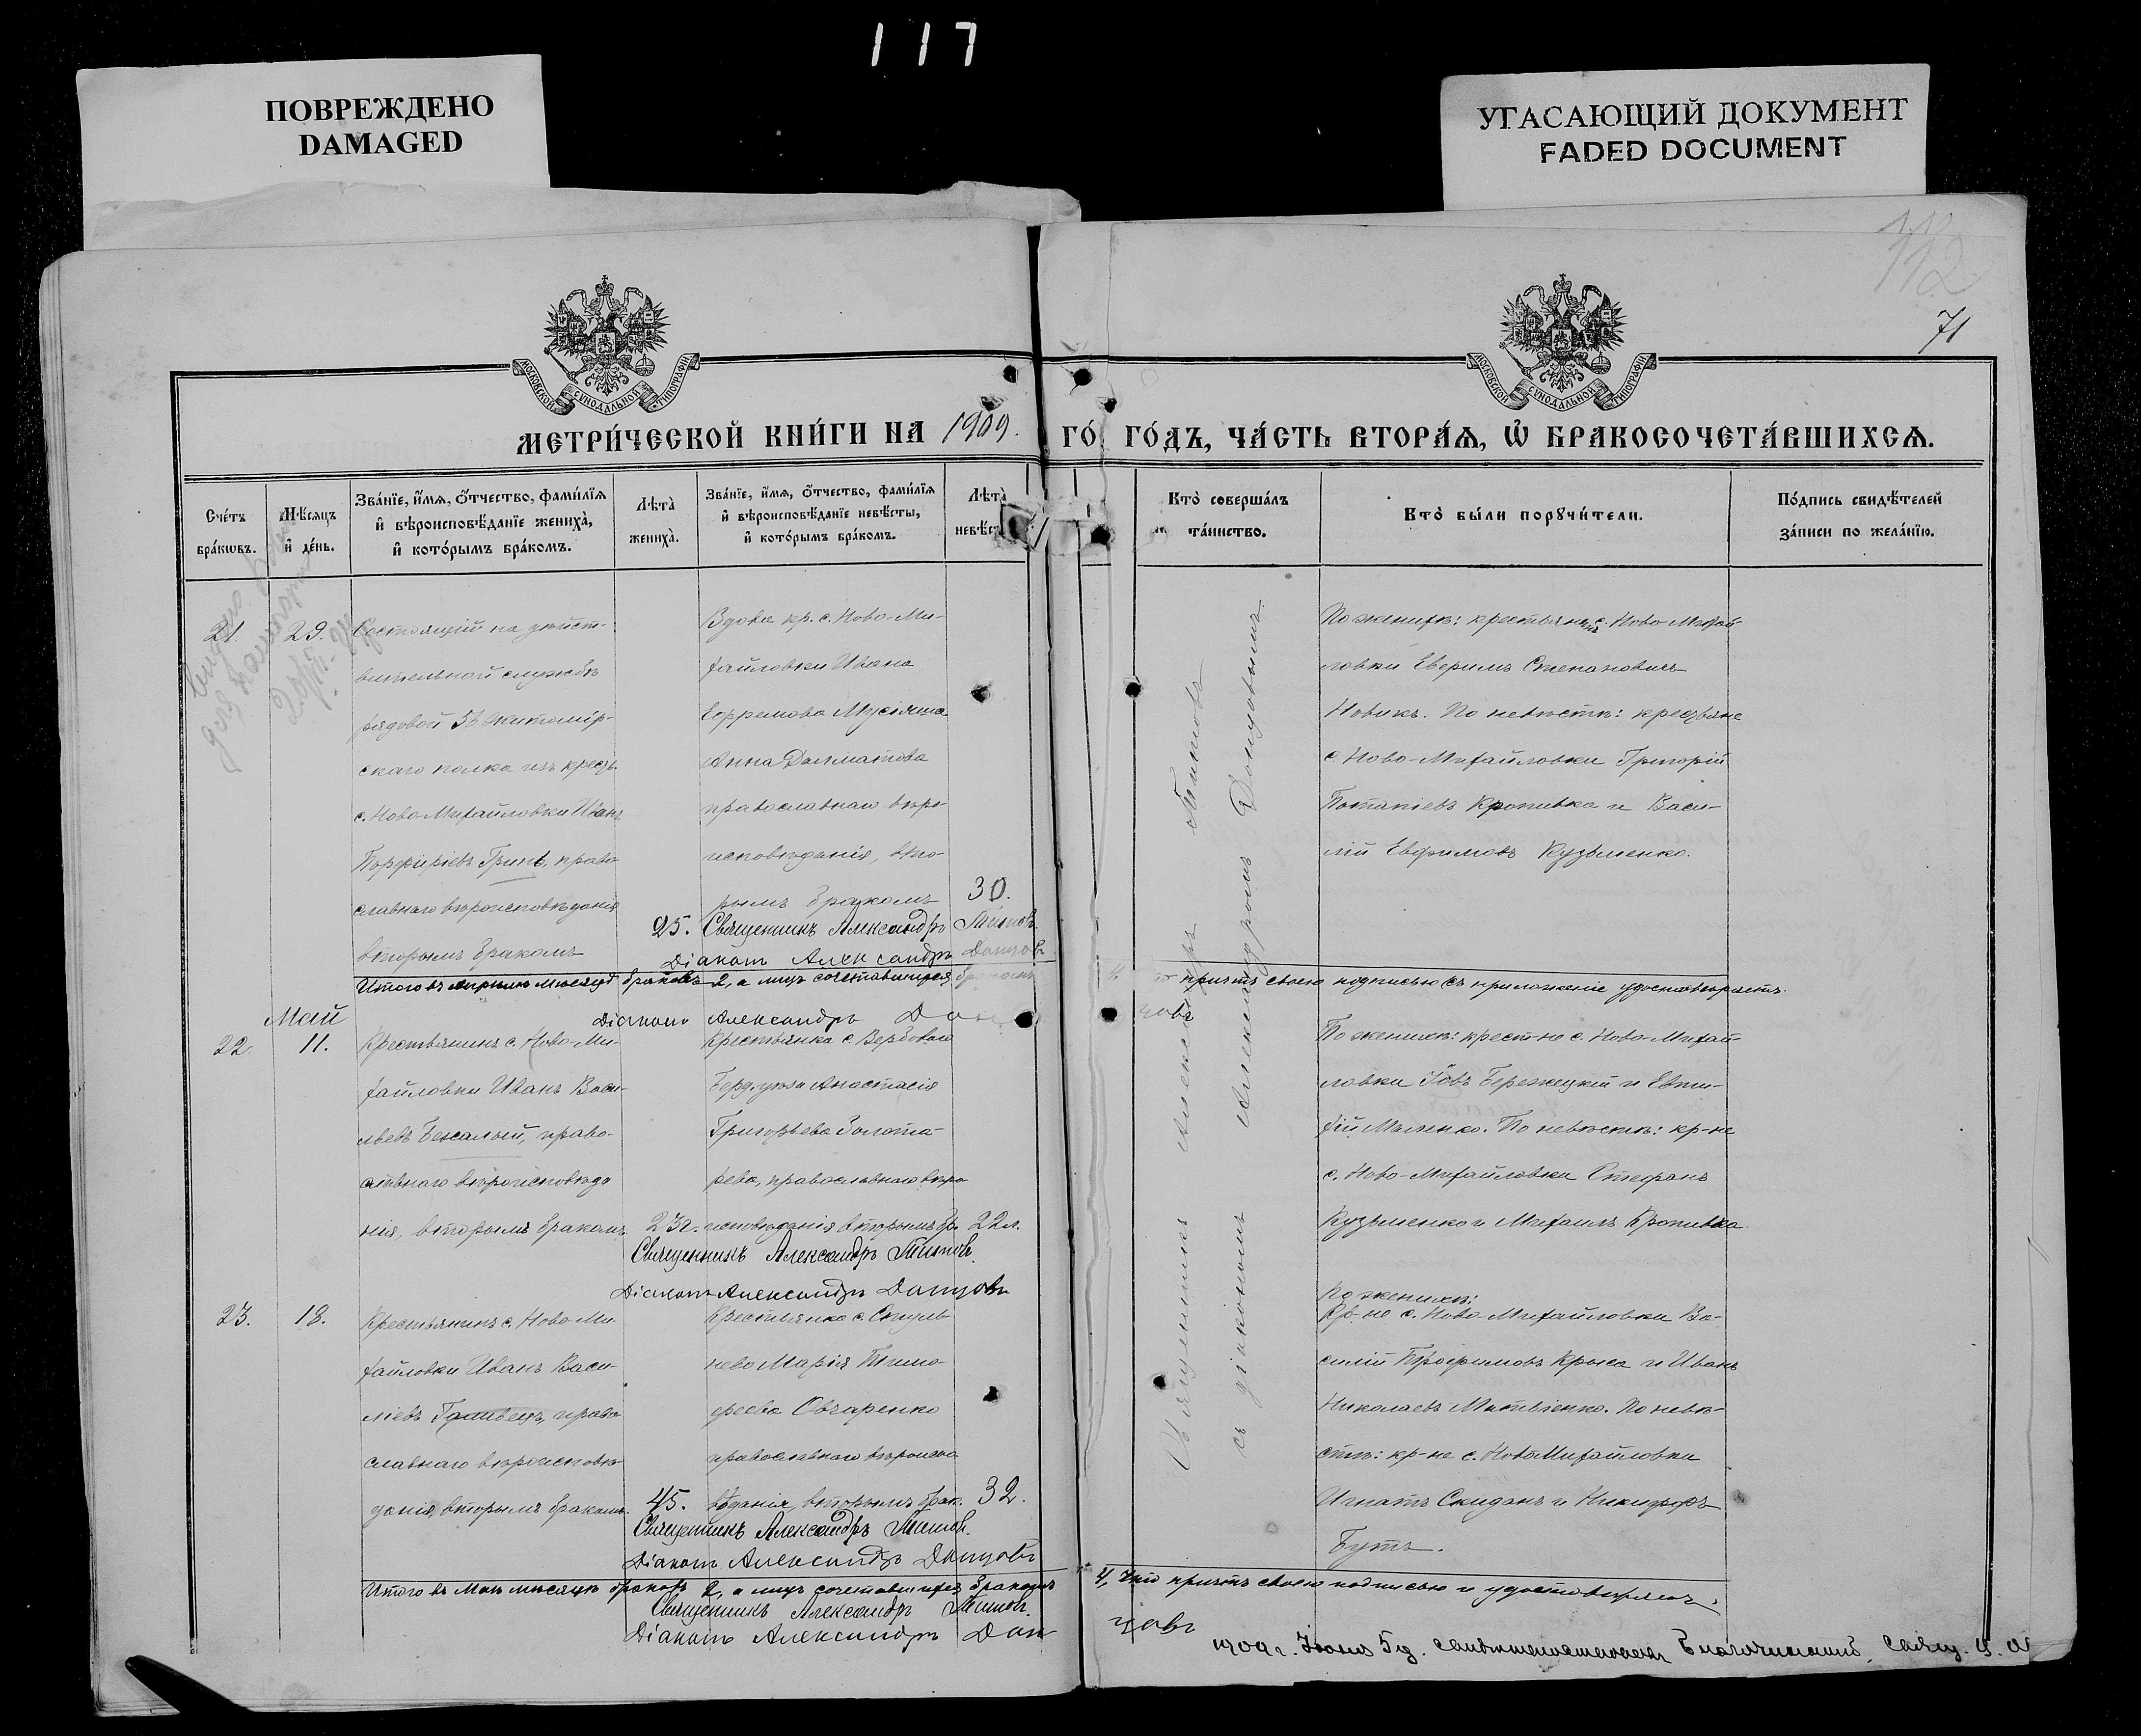 117
ПОВРЕЖДЕНО
DAMAGED
УГАСАЮЩИЙ ДОКУМЕНТ
FADED DOCUMENT
112
71
МОСКОВСКОЙ СУНОДАЛЬНОЙ ТИПОГРАФІИ
МОСКОВСКОЙ СУНОДАЛЬНОЙ ТИПОГРАФІИ
МЕТРИ́ЧЕСКОЙ КНИ́ГИ НА 1909. ГО́ ГО́ДЪ, ЧА́СТЬ ВТОРА́Ѧ, Ѽ БРАКОСОЧЕТА́ВШИХСѦ.
Сче́тъ
бра́кѡвъ.
Мѣ́сяцъ
и҆ де́нь.
Зва́нїе, и҆́мѧ, ѻ҆́тчество, фами́лїѧ
и҆ вѣроисповѣ́данїе жениха̀,
и҆ кото́рымъ бра́комъ.
Лѣ́та̀
жениха̀.
Зва́нїе, и҆́мѧ, ѻ҆́тчество, фами́лїѧ
и҆ вѣроисповѣ́данїе невѣ́сты,
и҆ кото́рымъ бра́комъ.
Лѣ́та̀
невѣ́с
Кто̀ соверша́лъ
та́инство.
Кто̀ бы́ли порꙋчи́тели.
По́дпись свидѣ́телей
за́писи по жела́нїю.
21. 29.
Состоящій на дѣйст-
вительной службѣ
рядовой 56 Житомір-
скаго полка изъ крест.
с. Ново-Михайловки Иванъ
Порфиріевъ Гринь, право
славнаго вѣроисповѣданія
вторымъ бракомъ
25.
Вдова кр. с. Ново-Ми-
хайловки Ивана
Ефремова Мусіяша
Анна Далматова
православнаго вѣро-
исповѣданія, вто-
рымъ бракомъ
30.
Священникъ Александръ Титовъ.
Діаконъ Александръ Донцовъ
По женихѣ: крестьяне с. Ново-Михай-
ловки Ефремъ Степановичъ
Новикъ. По невѣстѣ: крестьяне
с. Ново-Михайловки Григорій
Потапіевъ Кропивка и Васи-
лій Евфимовъ Кузьменко.
Итого въ апрѣлѣ мѣсяцѣ браковъ 2, а лицъ сочетавшихся бракомъ
4 что причтъ своею подписью съ приложеніе удостовѣряетъ.
Діаконъ Александръ Дон
цовъ
Май
22. 11.
Крестьянинъ с. Ново-Ми-
хайловки Иванъ Васи-
льевъ Бексалый, право-
славнаго вѣроисповѣда
нія, вторымъ бракомъ
23л.
Крестьянка с. Вербоваго
Берд. уѣзда Анастасія
Григорьева Золота-
рева, православнаго вѣро
исповѣданія вторымъ бр.
22л.
Священникъ Александръ Титовъ.
Діаконъ Александръ Донцовъ
По женихѣ: крест-не с. Ново-Михай-
ловки Іовъ Бережецкій и Евти-
хій Мыленко. По невѣстѣ: кр-не
с. Ново-Михайловки Стефанъ
Кузьменко и Михаилъ Кропивка
23. 18.
Крестьянинъ с. Ново-Ми
хайловки Иванъ Васи-
ліевъ Галивецъ, право
славнаго вѣроисповѣ-
данія, вторымъ бракомъ.
45.
Крестьянка с. Огуль-
нева Марія Тимо-
феева Овчаренко
православнаго вѣроиспо
вѣданія, вторымъ брак.
32.
Священникъ Александръ Титовъ.
Діаконъ Александръ Донцовъ
По женихѣ:
Кр-не с. Ново-Михайловки Ва-
силій Трофимовъ Крыса и Иванъ
Николаевъ Матвіенко. По невѣ-
стѣ: кр-не с. Ново-Михайловки
Игнатъ Скиданъ и Никифоръ
Бутъ.
Священникъ Александръ Титовъ
съ діакономъ Александромъ Донцовымъ.
Итого въ Маѣ мѣсяцѣ браковъ 2, а лицъ сочетавшихся бракомъ
4, что причтъ своею подписью и удостовѣряетъ.
Священникъ Александръ Титовъ.
Діаконъ Александръ Дон
цовъ
1909 г. Іюня 5 д. свидѣтельствовалъ Благочинный, свящ.